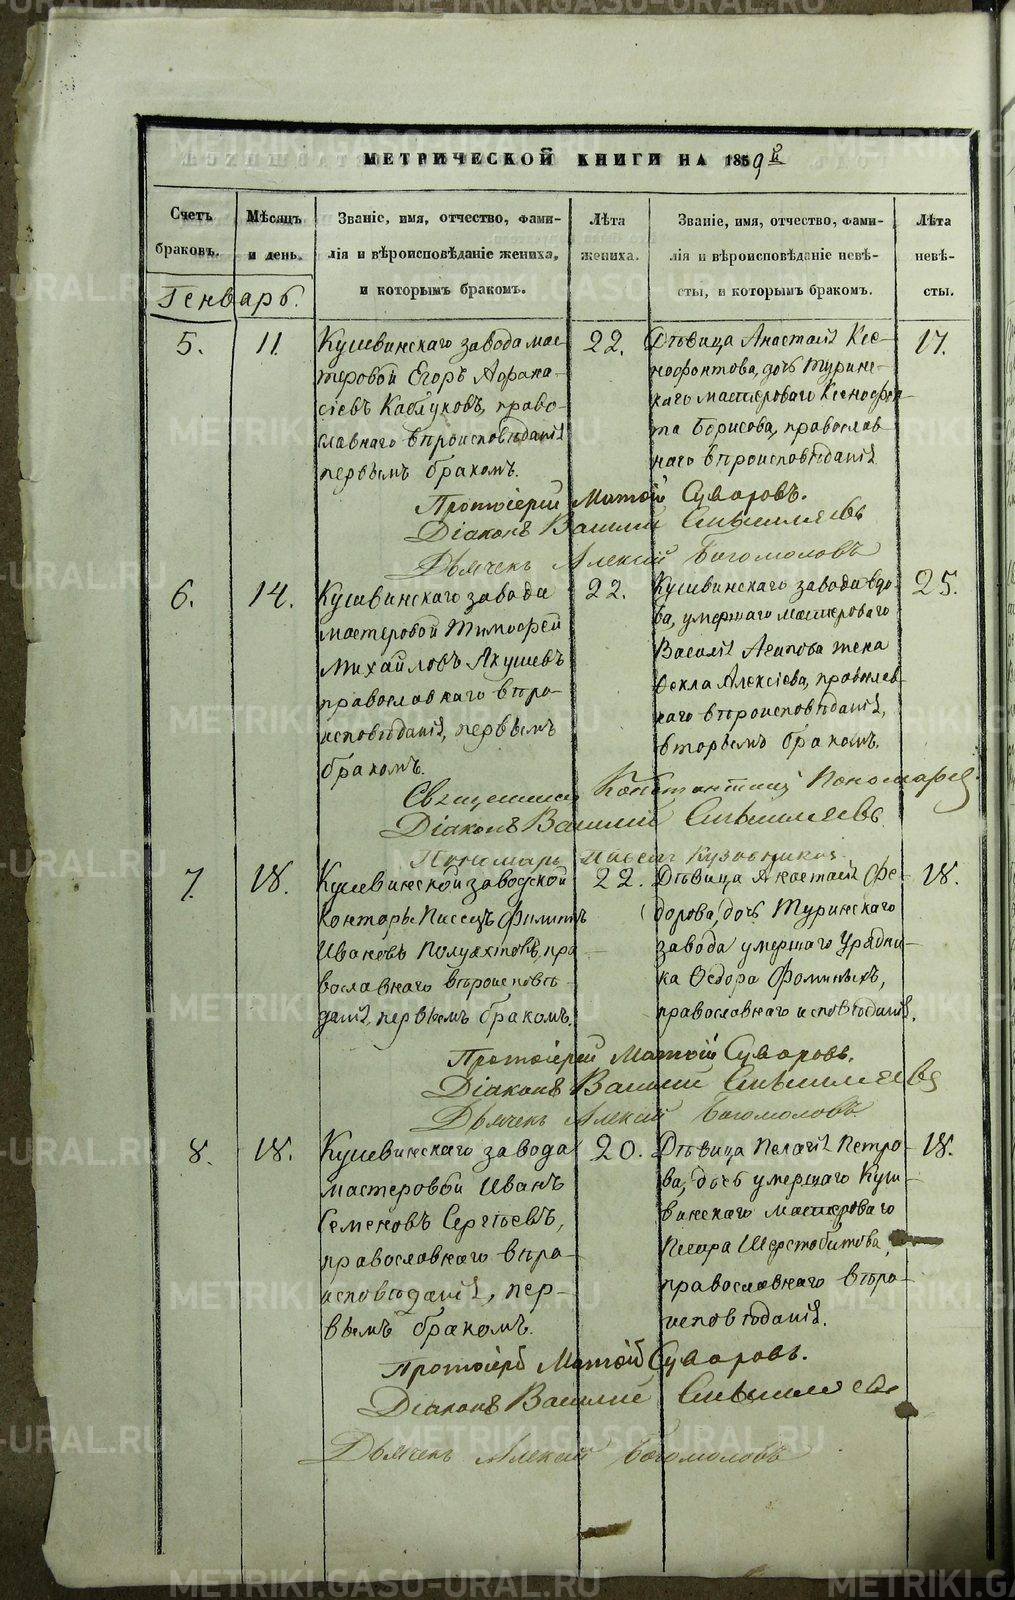 МЕТРИЧЕСКОЙ КНИГИ НА 1859й
Счетъ браковъ.
Мѣсяцъ и день.
Званіе, имя, отчество, фами-
лія и вѣроисповѣданіе жениха,
и которымъ бракомъ.
Лѣта жениха.
Званіе, имя, отчество, фами-
лія и вѣроисповѣданіе невѣ-
сты, и которымъ бракомъ.
Лѣта невѣ-
сты.
Генварь.
5.
11.
Кушвинскаго завода мас-
теровой Егоръ Афана-
сіевъ Каблуковъ, право-
славнаго вѣроисповѣданія
первымъ бракомъ.
22.
Дѣвица Анастасія Ксе-
нофонтова, дочь Турин-
скаго мастероваго Ксенофон-
та Борисова, православ-
наго вѣроисповѣданія
17.
Протоіерей Матѳій Суворовъ.
Діаконъ Василій
Дьячекъ Алексій Богомоловъ
6.
14.
Кушвинскаго завода
мастеровой Тимофей
Михайловъ Якушевъ
православнаго вѣро-
исповѣданія, первымъ
бракомъ.
22.
Кушвинскаго завода вдо-
ва, умершаго мастероваго
Василія Асипова жена
Ѳекла Алексіева, православ-
наго вѣроисповѣданія,
вторымъ бракомъ.
25.
Священникъ Константинъ Пономаревъ
Діаконъ Василій
Пономарь
7.
18.
Кушвинской заводской
конторы писецъ Филиппъ
Ивановъ Полуяхтовъ, пра-
вославнаго вѣроисповѣ-
данія, первымъ бракомъ.
22.
Дѣвица Анастасія Фе-
дорова, дочь Туринскаго
завода умершаго Урядни-
ка Ѳедора Фоминыхъ,
православнаго исповѣданія.
18.
Протоіерей Матѳій Суворовъ.
Діаконъ Василій
Дьячекъ Алексій Богомоловъ
8.
18.
Кушвинскаго завода
мастеровой Иванъ
Семеновъ Сергѣевъ,
православнаго вѣро-
исповѣданія, пер-
вымъ бракомъ.
20.
Дѣвица Пелагія Петро-
ва, дочь умершаго Куш-
винскаго мастероваго
Петра Шерстобитова,
православнаго вѣро-
исповѣданія.
18.
Протоіерей Матѳій Суворовъ.
Діаконъ Василій
Дьячекъ Алексій Богомоловъ
METRIKI.GASO-URAL.RU